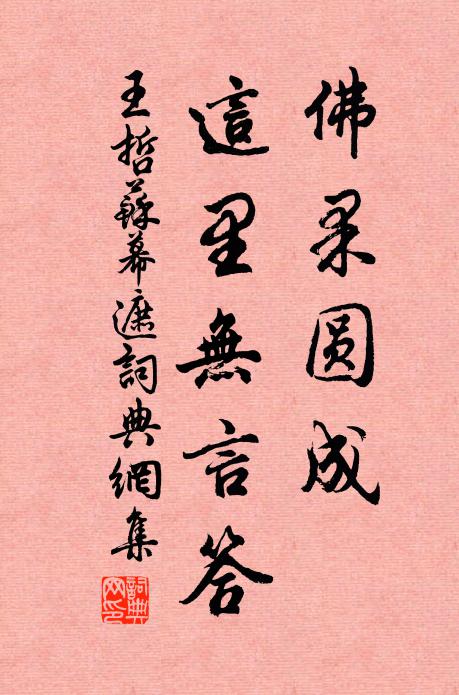 佛果圆成
這里無言答
王哲蘇幕遮詞典網集
詞典
网印